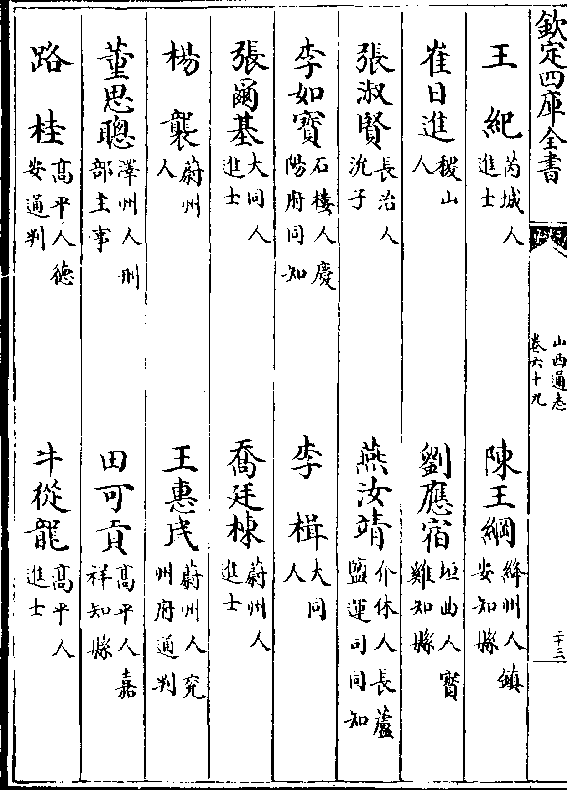 欽定四庫全書
山西通志
卷六十九
二十三
王紀 芮城人進士
陳王綱 絳州人鎮安知縣
崔日進 稷山人
劉應宿 垣曲人寶雞知縣
張淑賢 長治人沇子
燕汝靖 介休人長蘆鹽運司同知
李如寶 石樓人慶陽府同知
李楫 大同人
張爾基 大同人進士
喬廷棟 蔚州人進士
楊襲 蔚州人
王惠民 蔚州人兖州府通判
董思聰 澤州人刑部主事
田可貢 高平人嘉祥知縣
路桂 高平人德安通判
牛從龍 高平人進士